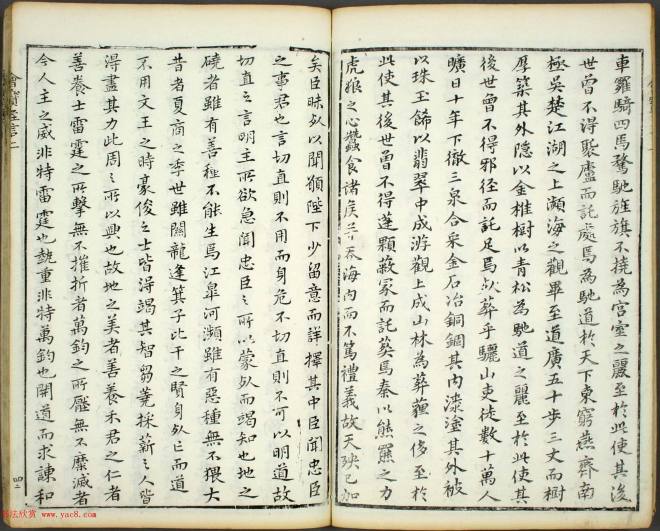 車羅騎四馬騖馳旌旗不撓為宮室之麗至於此使其後
世曾不得聚廬而託處焉為馳道於天下東窮燕齊南
極吳楚江湖之上瀕海之觀畢至道廣五十步三丈而樹
厚築其外隱以金椎樹以青松為馳道之麗至於此使其
後世曾不得邪徑而託足焉死葬乎驪山吏徒數十萬人
曠日十年下徹三泉合采金石冶銅錮其內漆塗其外被
以珠玉飾以翡翠中成游觀上成山林為葬薶之侈至於
此使其後世曾不得蓬顆蔽冢而託葬焉秦以熊羆之力
虎狼之心蠶食諸侯并吞海內而不篤禮義故天殃已加
矣臣昧死以聞願陛下少留意而詳擇其中臣聞忠臣
之事君也言切直則不用而身危不切直則不可以明道故
切直之言明主所欲急聞忠臣之所以蒙死而竭知也地之
磽者雖有善種不能生焉江皋河瀕雖有惡種無不猥大
昔者夏商之季世雖關龍逢箕子比干之賢身死亡而道
不用文王之時豪俊之士皆得竭其智芻蕘採薪之人皆
得盡其力此周之所以興也故地之美者善養禾君之仁者
善養士雷霆之所擊無不摧折者萬鈞之所壓無不糜滅者
今人主之威非特雷霆也勢重非特萬鈞也開道而求諫和
四二
书法欣赏 www.yac8.com